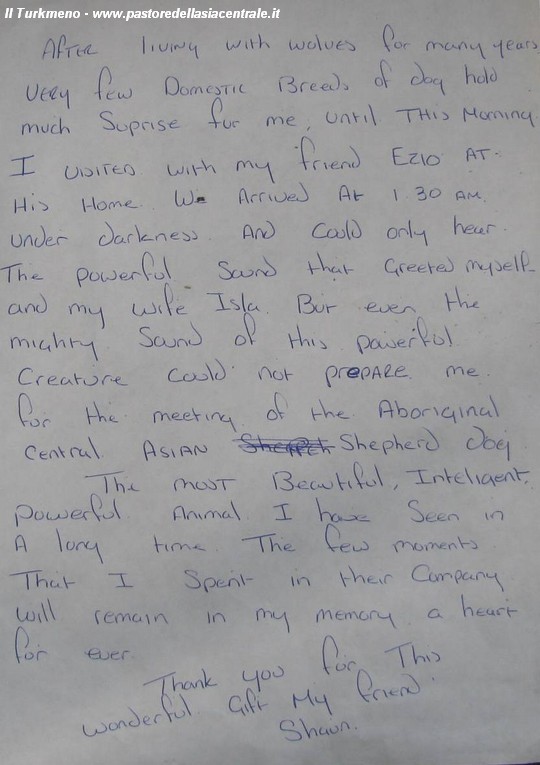 Il Turkmeno - www.pastoredellasiacentrale.it
AFTER living with wolves for many years
VERY few Domestic Breeds of dog hold
much Suprise for me, until THis Morning.
I visited with my friend EZIO AT
His Home. We Arrived At 1.30 AM.
under darkness. And Could only hear.
The powerful Sound that Greeted myself
and my wife Isla. But even the
mighty Sound of this powerful
Creature Could not prePARE me.
for the meeting of the Aboriginal
Central ASIAN Shepherd dog
The most Beautiful, Inteligent,
powerful Animal I have Seen in
A long time. The few moments
That I Spent in their Company
will remain in my memory a heart
for ever.
Thank you for This
wonderful Gift My friend.
Shaun.